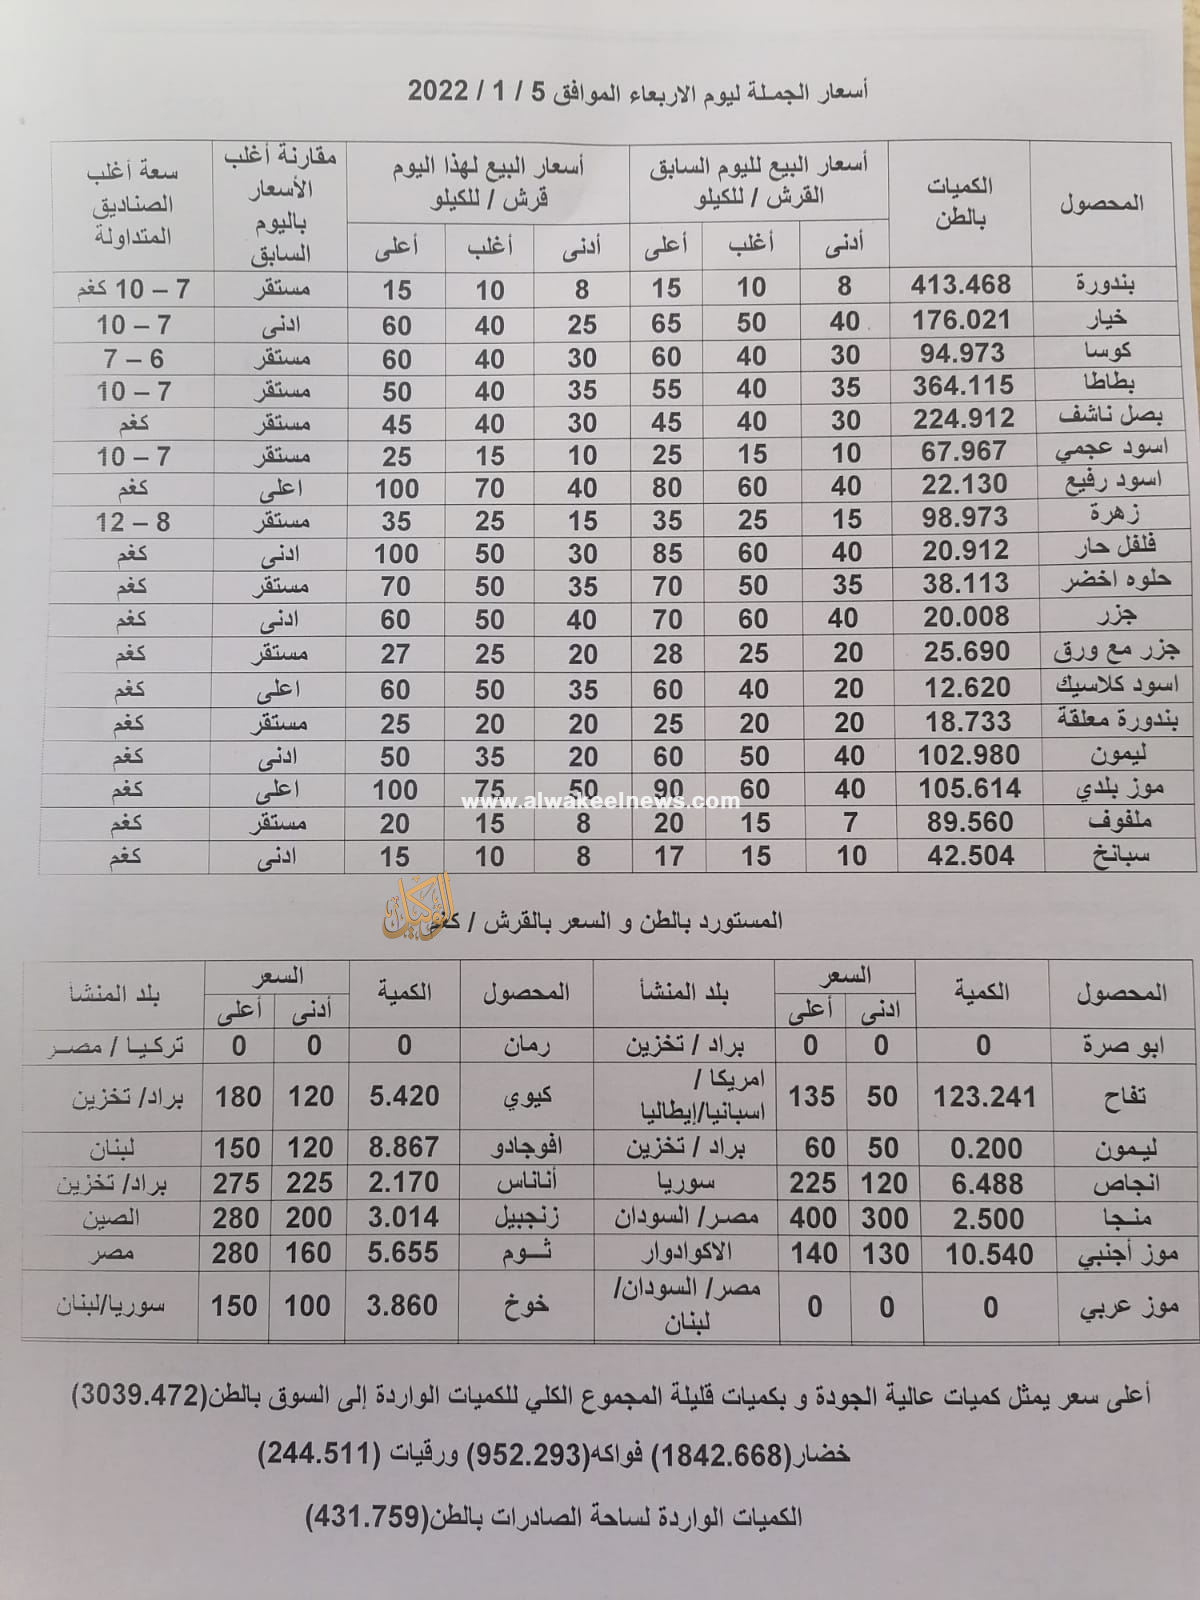 أسعار الجملة ليوم الاربعاء الموافق 5 / 1 / 2022
المحصول | الكميات بالطن | أسعار البيع لليوم السابق القرش / للكيلو | أسعار البيع لهذا اليوم قرش / للكيلو | مقارنة أغلب الأسعار باليوم السابق | سعة أغلب الصناديق المتداولة
أدنى | أغلب | أعلى | أدنى | أغلب | أعلى
بندورة | 413.468 | 8 | 10 | 15 | 8 | 10 | 15 | مستقر | 7 – 10 كغم
خيار | 176.021 | 40 | 50 | 65 | 25 | 40 | 60 | ادنى | 7 – 10
كوسا | 94.973 | 30 | 40 | 60 | 30 | 40 | 60 | مستقر | 6 – 7
بطاطا | 364.115 | 35 | 40 | 55 | 35 | 40 | 50 | مستقر | 7 – 10
بصل ناشف | 224.912 | 30 | 40 | 45 | 30 | 40 | 45 | مستقر | كغم
اسود عجمي | 67.967 | 10 | 15 | 25 | 10 | 15 | 25 | مستقر | 7 – 10
اسود رفيع | 22.130 | 40 | 60 | 80 | 40 | 70 | 100 | اعلى | كغم
زهرة | 98.973 | 15 | 25 | 35 | 15 | 25 | 35 | مستقر | 8 – 12
فلفل حار | 20.912 | 40 | 60 | 85 | 30 | 50 | 100 | ادنى | كغم
حلوه اخضر | 38.113 | 35 | 50 | 70 | 35 | 50 | 70 | مستقر | كغم
جزر | 20.008 | 40 | 60 | 70 | 40 | 50 | 60 | ادنى | كغم
جزر مع ورق | 25.690 | 20 | 25 | 28 | 20 | 25 | 27 | مستقر | كغم
اسود كلاسيك | 12.620 | 20 | 40 | 60 | 35 | 50 | 60 | اعلى | كغم
بندورة معلقة | 18.733 | 20 | 20 | 25 | 20 | 20 | 25 | مستقر | كغم
ليمون | 102.980 | 40 | 50 | 60 | 20 | 35 | 50 | ادنى | كغم
موز بلدي | 105.614 | 40 | 60 | 90 | 50 | 75 | 100 | اعلى | كغم
www.alwakeelnews.com
ملفوف | 89.560 | 7 | 15 | 20 | 8 | 15 | 20 | مستقر | كغم
سبانخ | 42.504 | 10 | 15 | 17 | 8 | 10 | 15 | ادنى | كغم
الوكيل
المستورد بالطن و السعر بالقرش / كغم
المحصول | الكمية | السعر | بلد المنشأ | المحصول | الكمية | السعر | بلد المنشأ
ادنى | أعلى | أدنى | أعلى
ابو صرة | 0 | 0 | 0 | براد / تخزين | رمان | 0 | 0 | 0 | تركيا / مصر
تفاح | 123.241 | 50 | 135 | امريكا / اسبانيا/إيطاليا | كيوي | 5.420 | 120 | 180 | براد/ تخزين
ليمون | 0.200 | 50 | 60 | براد / تخزين | افوجادو | 8.867 | 120 | 150 | لبنان
انجاص | 6.488 | 120 | 225 | سوريا | أناناس | 2.170 | 225 | 275 | براد/ تخزين
منجا | 2.500 | 300 | 400 | مصر/ السودان | زنجبيل | 3.014 | 200 | 280 | الصين
موز أجنبي | 10.540 | 130 | 140 | الاكوادوار | ثوم | 5.655 | 160 | 280 | مصر
موز عربي | 0 | 0 | 0 | مصر/ السودان/ لبنان | خوخ | 3.860 | 100 | 150 | سوريا/لبنان
أعلى سعر يمثل كميات عالية الجودة و بكميات قليلة المجموع الكلي للكميات الواردة إلى السوق بالطن(3039.472)
خضار(1842.668) فواكه(952.293) ورقيات (244.511)
الكميات الواردة لساحة الصادرات بالطن(431.759)